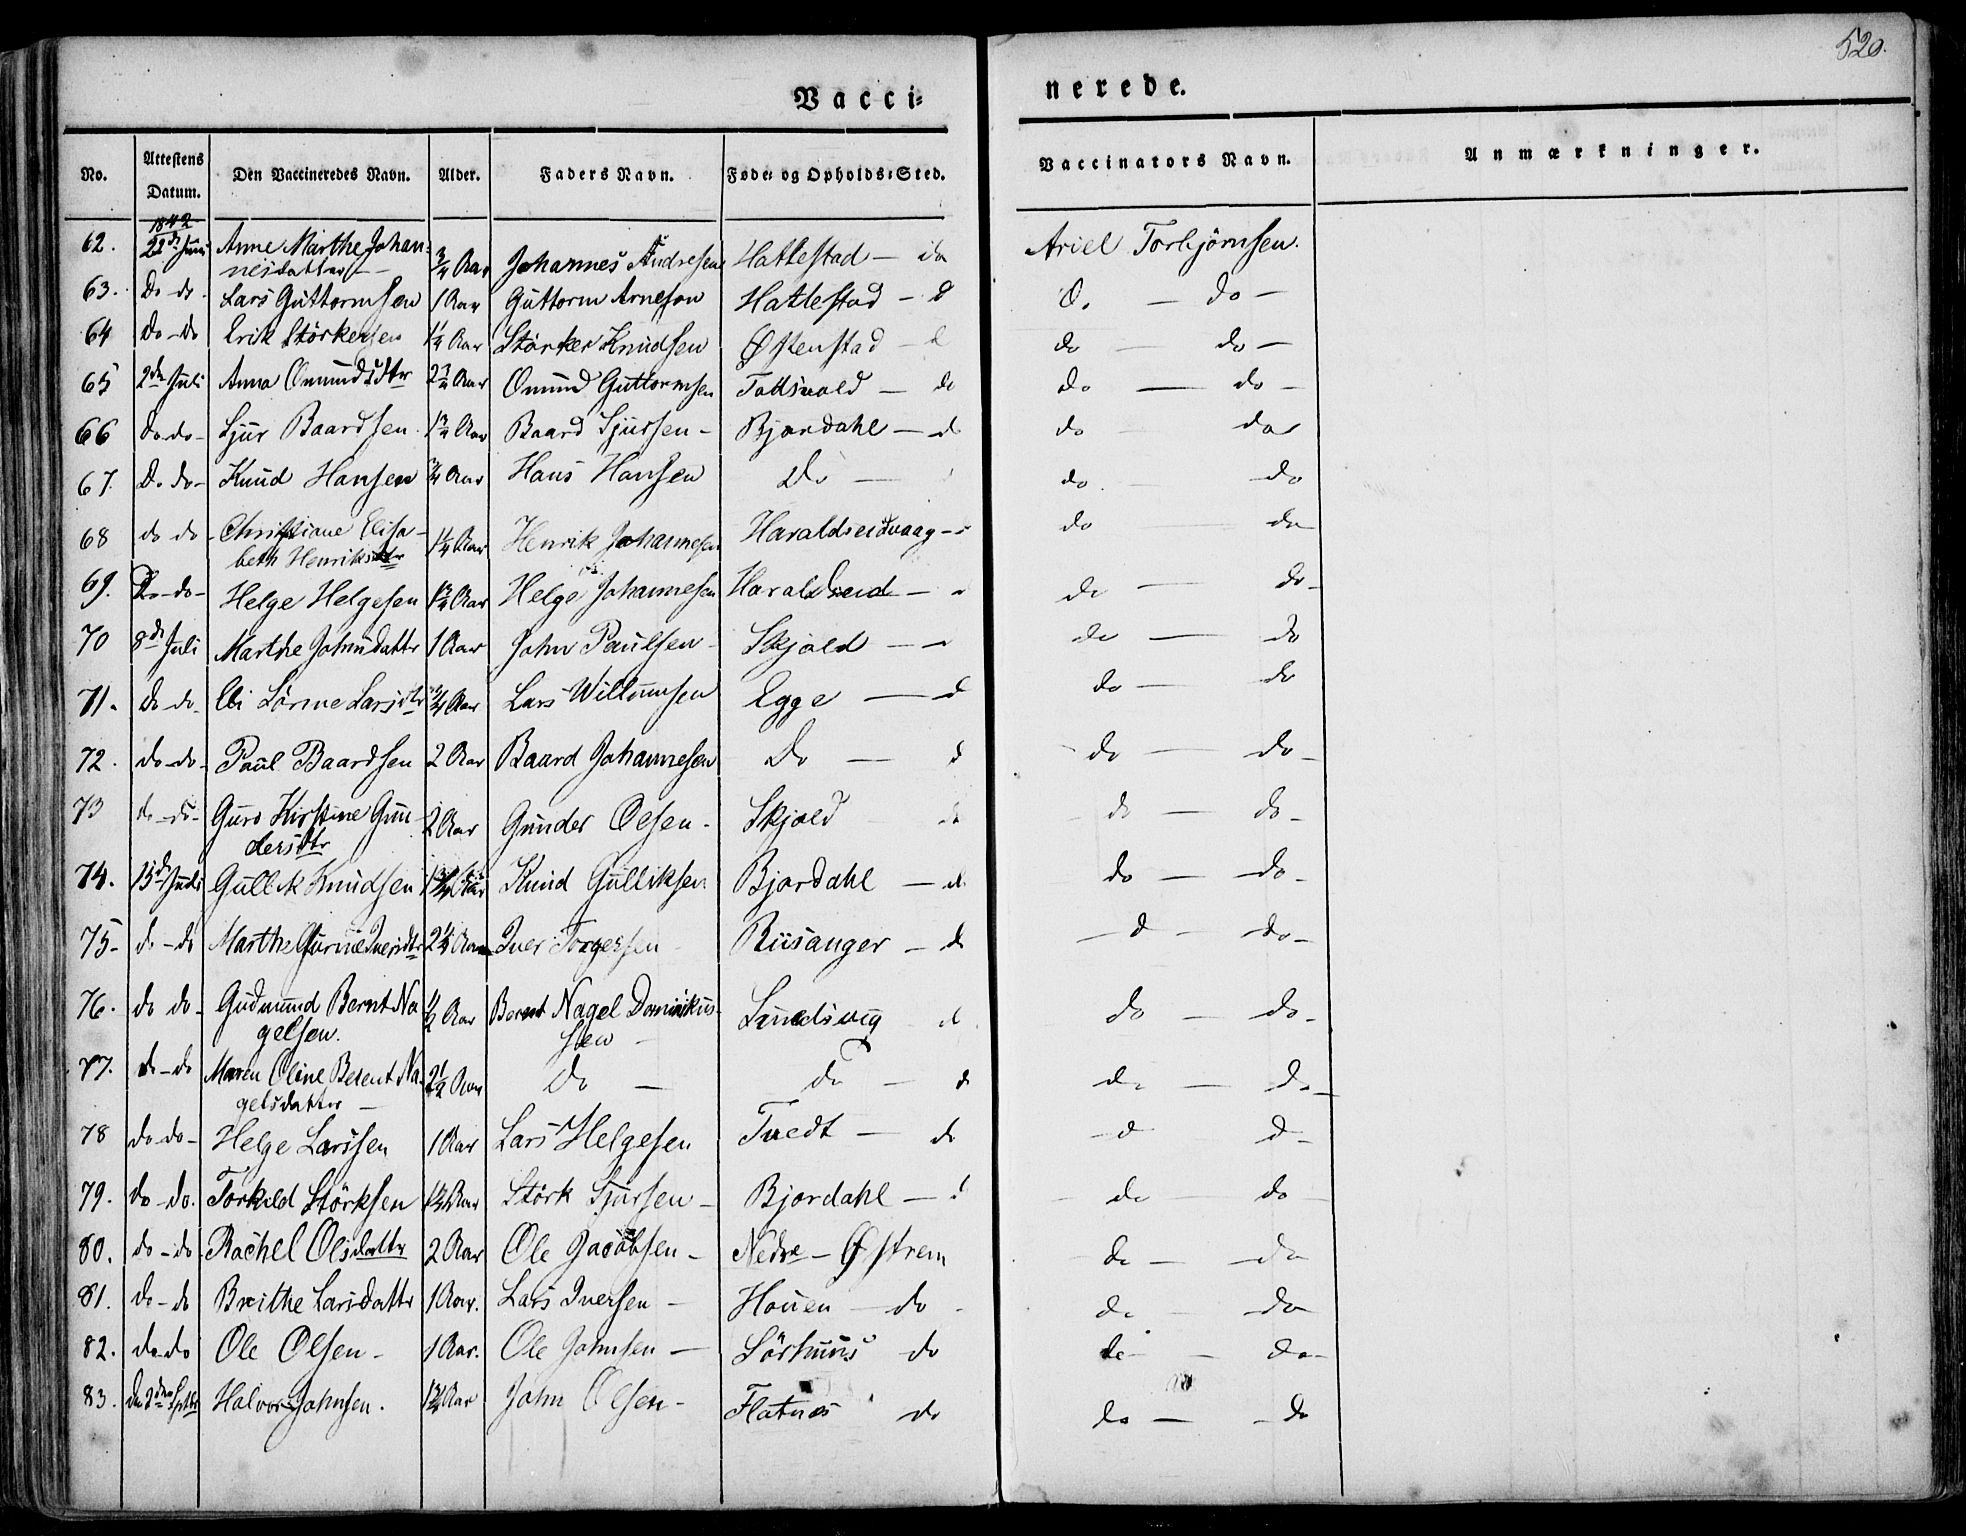 520.
Vacci= nerede.
No. Attestens Datum. Den Vaccineredes Navn. Alder. Faders Navn. Føde= og Opholds=Sted. Vaccinators Navn. Anmærkninger.
1842
62. 22de Juni Anne Marthe Johan= 3/4 Aar Johannes Andresen Hattestad — do Ariel Torbjörnsen.
nesdatter —
63. Do - do. Lars Guttormsen 1 Aar Guttorm Arneson Hattestad - d D. — do —
64 Do - Do Erik Störkersen 1 1/4 Aar Störker Knudsen Østenstad - d do — do —
65 2den Juli Anna Omundsdtr 2 3/4 Aar Omund Guttormsen — do do — do —
66 do - do - Sjur Baardsen 1 3/4 Aar Baard Sjursen - Bjordahl — do do — do
67. D. do - Knud Hansen 3/4 Aar Hans Hansen Do — do — do
68 do do - Christiane Elisa- 1 1/4 Aar Henrik Johannesen Haraldseidvaag - do — do
beth Henriksdtr
69. Do - do - Helge Helgesen 1 3/4 Aar Helge Johannesen Haraldseid — do — do -
70 8de Juli Marthe Johnsdattr 1 Aar John Paulsen - Skjold — do — do
71. Do do - Eli Lars dtr 3/4 Aar Lars Willumsen Egge — d do — do
72. do - do - Paul Baardsen 2 Aar Baard Johannesen Do — d - do — do -
73 do - do - Guro Kirstine Gun- 2 Aar Gunder Olsen - Skjold do - do — do -
dersdtr
74. 15de Juli Gullik Knudsen Aar Knud Gulliksen Bjordahl — d. do — do -
75 - d. - do Marthe Iversdtr 2 1/4 Aar Iver Torgersen - Risanger — do — d — do -
76. do do - Gudmund Bernt Na 1/2 Aar Bernt Nagel Dominikus- d. do — do -
gelsen. sen —
77. do - do Maren Oline Berent Na- 2 1/2 Aar Do — do — d do — do -
gelsdatter —
78 do - do - Helge Larssen 1 Aar Lars Helgesen Tvedt — do — d d -
79. do - do. Torkild Störksen 1 3/4 Aar Störk Sjursen - Bjordahl — d - do — do -
80. do - do Rachel Olsdattr 2 Aar Ole Jacobsen - Nedre - Østrem do — do
81. do - do Breithe Larsdattr 1 Aar. Lars Iversen — Houen — do - do — do
82. do do Ole Olsen - 1 Aar. Ole Johnsen — Sörhuus do do — do -
83. den 2den Septbr Halvor Johnsen. 1 3/4 Aar John Olsen - Flatnæs do do — do